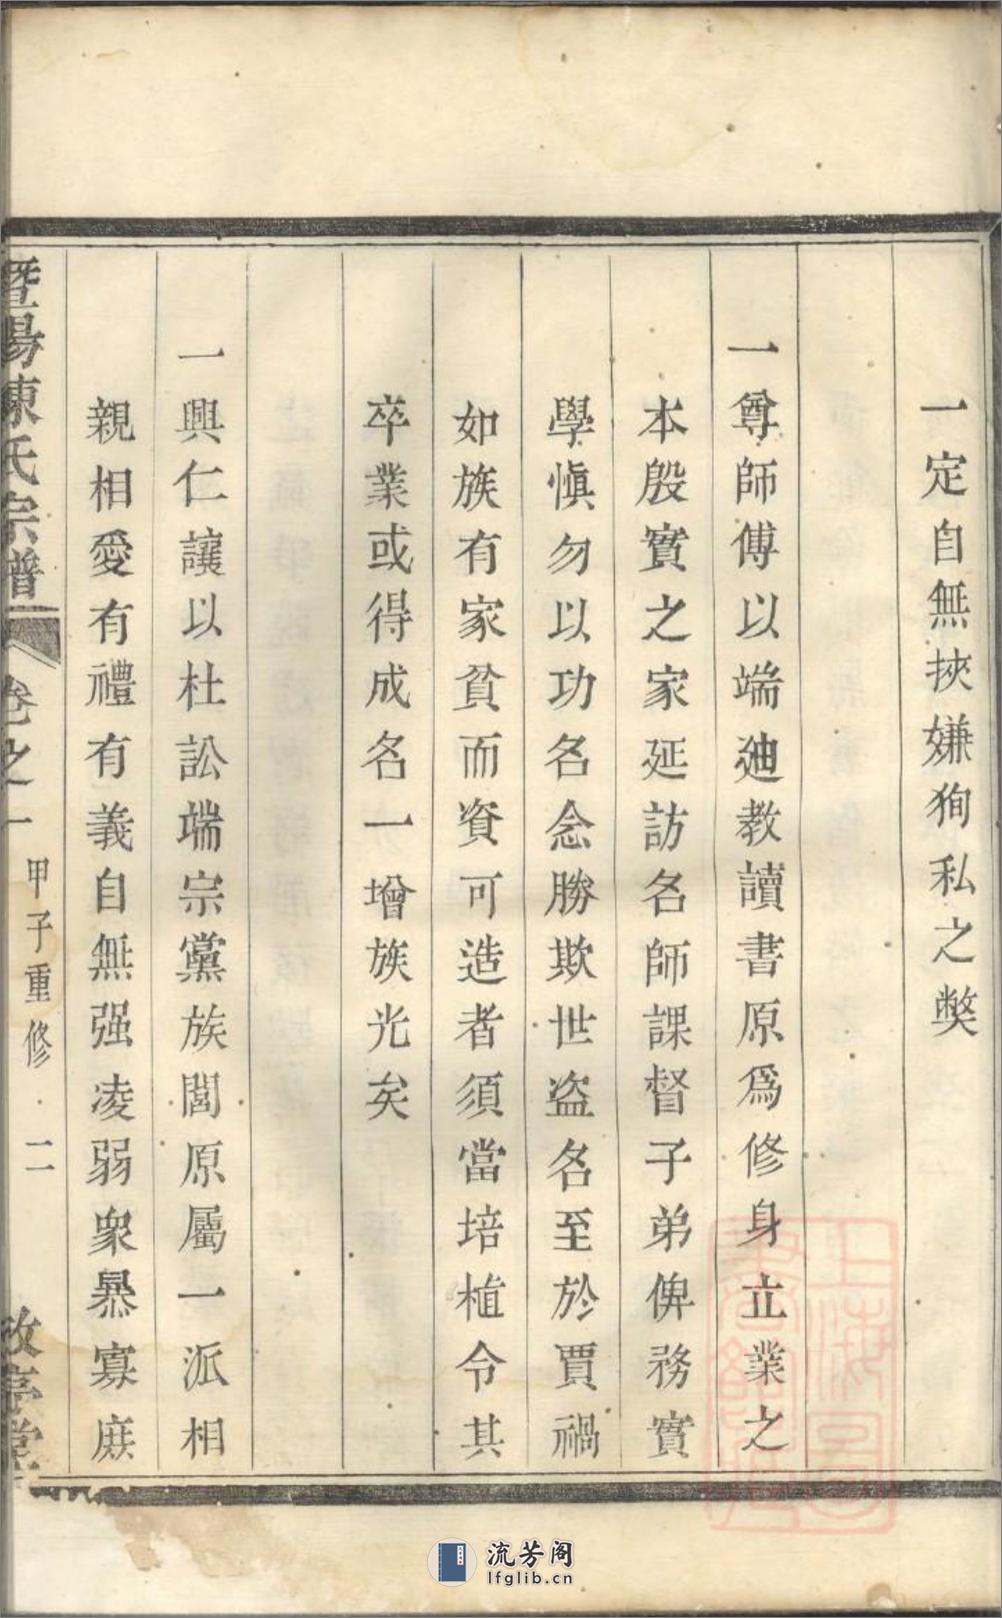 一定自無挾嫌狥私之獘
一尊師傅以端廸教讀書原爲修身立業之
本殷實之家延訪名師課督子弟俾務實
學慎勿以功名念勝欺世盜名至於賈禍
如族有家貧而資可造者須當培植令其
卒業或得成名一增族光矣
一興仁讓以杜訟端宗黨族閭原屬一派相
親相愛有禮有義自無强凌弱衆暴寡庶
暨陽陳氏宗譜
卷之一
甲子重修
二
敘享堂
上海圖
書館藏
流芳阁
lfglib.cn